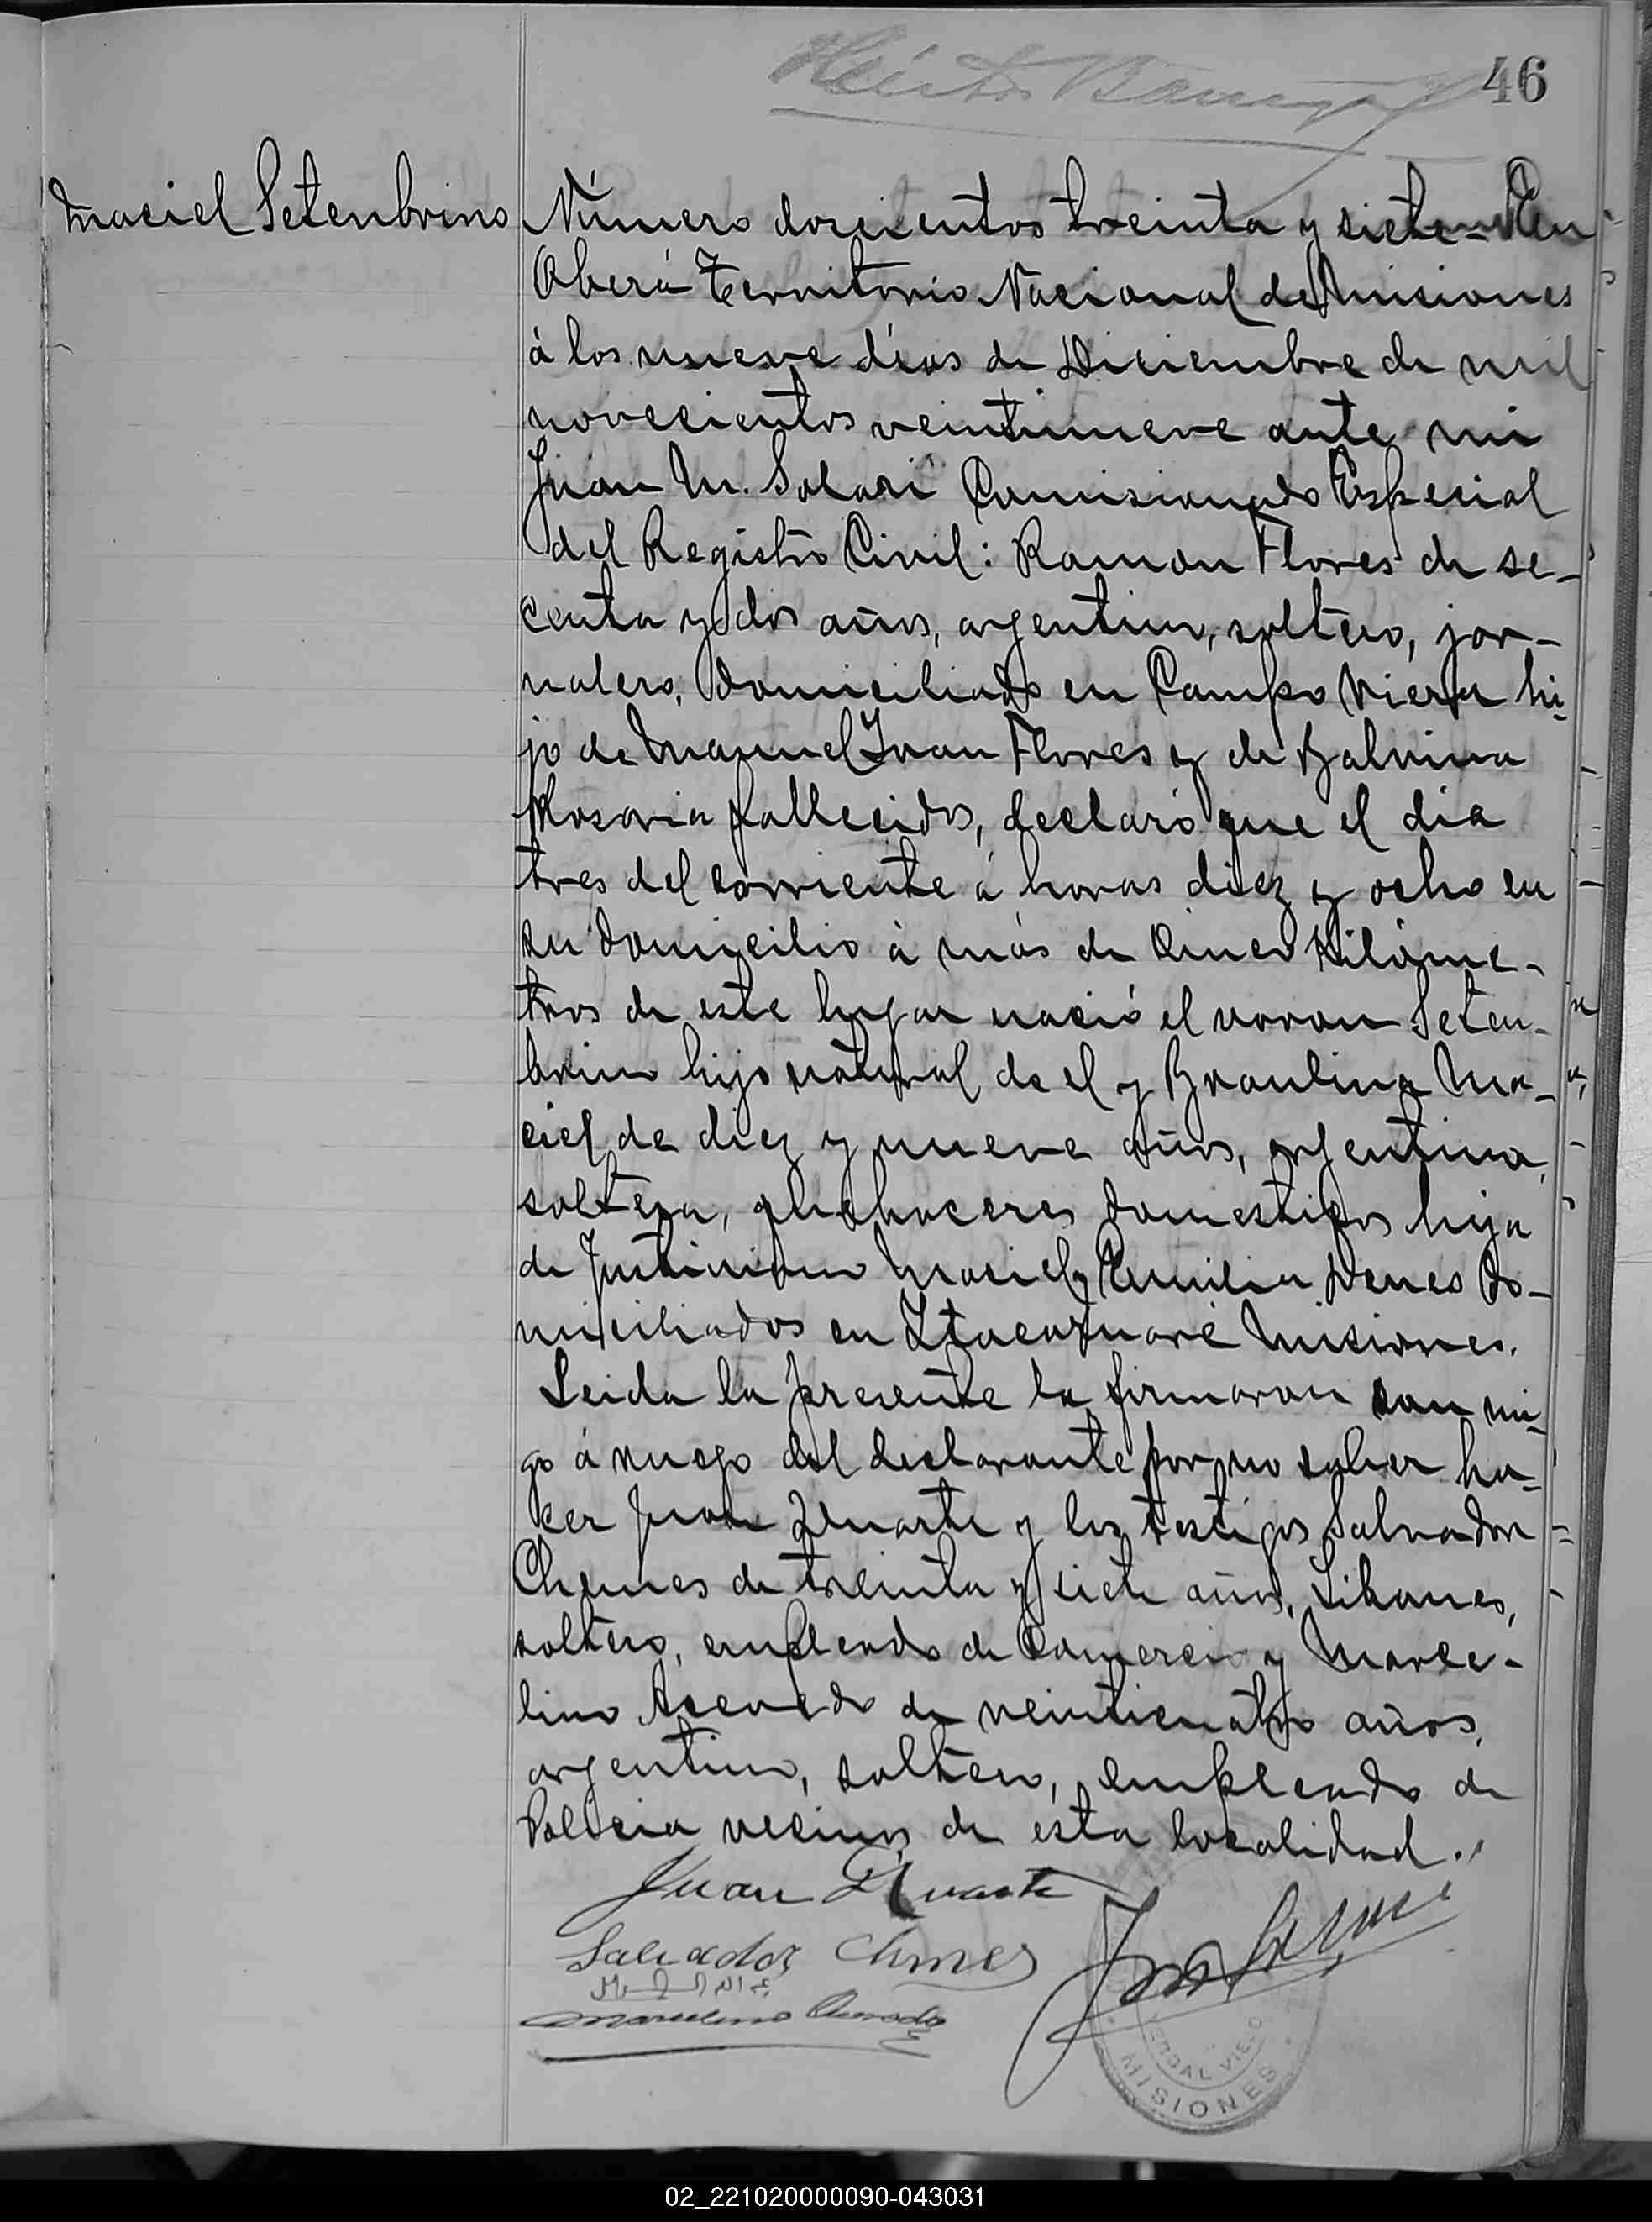 46
Maciel Setenbrino
Número doscientos treinta y siete - En
Oberá Territorio Nacional de Misiones
á los nueve dias de Diciembre de mil
novecientos veintinueve ante mi
Juan M. Solari Comisionado Especial
del Registro Civil: Ramon Flores de se-
centa y dos años, argentino, soltero, jor-
nalero, domiciliado en Campo Viera hi-
jo de Manuel Juan Flores y de Balvina
Rosaria fallecidos, declaró que el dia
tres del corriente á horas diez y ocho en
su domicilio á más de Cinco Kilóme-
tros de este lugar nació el varon Seten-
brino hijo natural de el y Braulina Ma-
ciel de diez y nueve años, argentina,
soltera, quehaceres domesticos hija
de Justiniano Maciel y Emilia Denes do-
miciliados en Itacaruaré Misiones.
Leida la presente la firmaron con mi-
go á ruego del declarante por no saber ha-
cer Juan Duarte y los testigos Salvador
Chemes de treinta y siete años, Libanes,
soltero, empleado de Comercio y Marce-
lino Acevedo de veinticuatro años,
argentino, soltero, empleado de
Policia vecinos de esta localidad.
Juan Duarte
Salvador Chemes
Marcelino Acevedo
YERBAL VIEJO
MISIONES
02_221020000090-043031